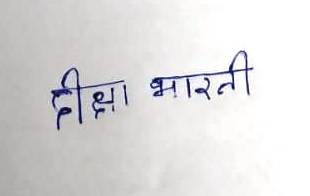 दीक्षा भारती